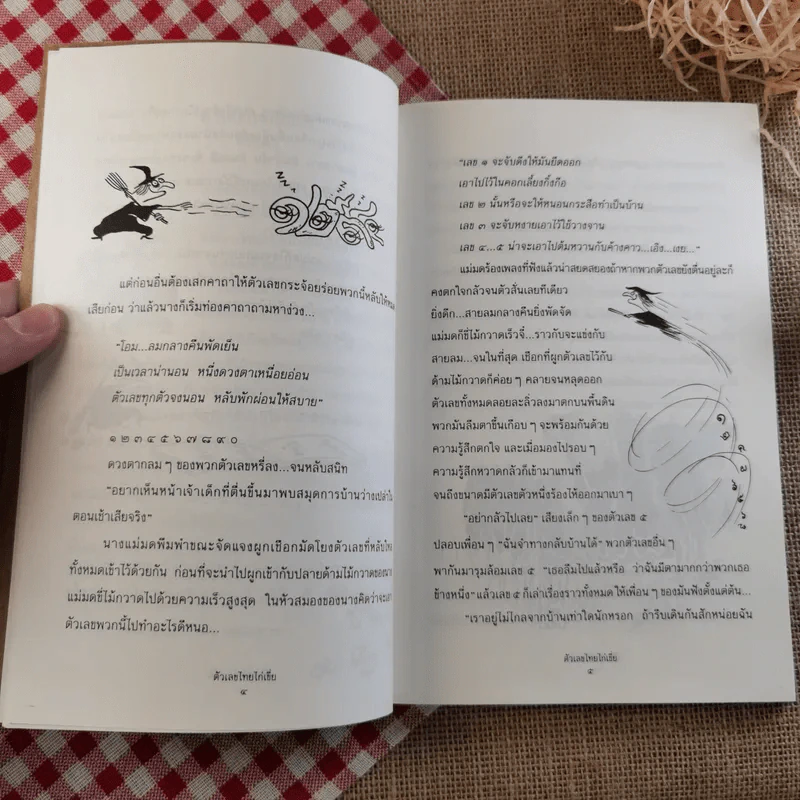 แต่ก่อนอื่นต้องเสกคาถาให้ตัวเลขกระจ้อยร่อยพวกนี้หลับให้หมด
เสียก่อน ว่าแล้วนางก็เริ่มท่องคาถาถามหาง่วง...
"โอม...ลมกลางคืนพัดเย็น
เป็นเวลาน่านอน หนึ่งดวงตาเหนื่อยอ่อน
ตัวเลขทุกตัวจงนอน หลับพักผ่อนให้สบาย"
๑ ๒ ๓ ๔ ๕ ๖ ๗ ๘ ๙ ๐
ดวงตากลม ๆ ของพวกตัวเลขหรี่ลง...จนหลับสนิท
"อยากเห็นหน้าเจ้าเด็กที่ตื่นขึ้นมาพบสมุดการบ้านว่างเปล่าใน
ตอนเช้าเสียจริง"
นางแม่มดพึมพำขณะจัดแจงผูกเชือกมัดโยงตัวเลขที่หลับใหล
ทั้งหมดเข้าไว้ด้วยกัน ก่อนที่จะนำไปผูกเข้ากับปลายด้ามไม้กวาดของนาง
แม่มดขี่ไม้กวาดไปด้วยความเร็วสูงสุด ในหัวสมองของนางคิดว่าจะเอา
ตัวเลขพวกนี้ไปทำอะไรดีหนอ...
ตัวเลขไทยไก่เขี่ย
๔
"เลข ๑ จะจับดึงให้มันยืดออก
เอาไปไว้ในคอกเลี้ยงกิ้งกือ
เลข ๒ นั้นหรือจะให้หนอนกระสือทำเป็นบ้าน
เลข ๓ จะจับหงายเอาไว้ใช้วางจาน
เลข ๔...๕ น่าจะเอาไปต้มหวานกับค้างคาว...เอิง...เงย..."
แม่มดร้องเพลงที่ฟังแล้วน่าสยดสยองถ้าหากพวกตัวเลขยังตื่นอยู่ละก็
คงตกใจกลัวจนตัวสั่นเลยทีเดียว
ยิ่งดึก...สายลมกลางคืนยิ่งพัดจัด
แม่มดก็ขี่ไม้กวาดเร็วจี๋...ราวกับจะแข่งกับ
สายลม...จนในที่สุด เชือกที่ผูกตัวเลขไว้กับ
ด้ามไม้กวาดก็ค่อย ๆ คลายจนหลุดออก
ตัวเลขทั้งหมดลอยละลิ่วลงมาตกบนพื้นดิน
พวกมันลืมตาขึ้นเกือบ ๆ จะพร้อมกันด้วย
ความรู้สึกตกใจ และเมื่อมองไปรอบ ๆ
ความรู้สึกหวาดกลัวก็เข้ามาแทนที่
จนถึงขนาดมีตัวเลขตัวหนึ่งร้องไห้ออกมาเบา ๆ
"อย่ากลัวไปเลย" เสียงเล็ก ๆ ของตัวเลข ๕
ปลอบเพื่อน ๆ "ฉันจำทางกลับบ้านได้" พวกตัวเลขอื่น ๆ
พากันมารุมล้อมเลข ๕ "เธอลืมไปแล้วหรือ ว่าฉันมีตามากกว่าพวกเธอ
ข้างหนึ่ง" แล้วเลข ๕ ก็เล่าเรื่องราวทั้งหมด ให้เพื่อน ๆ ของมันฟังตั้งแต่ต้น...
"เราอยู่ไม่ไกลจากบ้านเท่าใดนักหรอก ถ้ารีบเดินกันสักหน่อยฉัน
ตัวเลขไทยไก่เขี่ย
๕